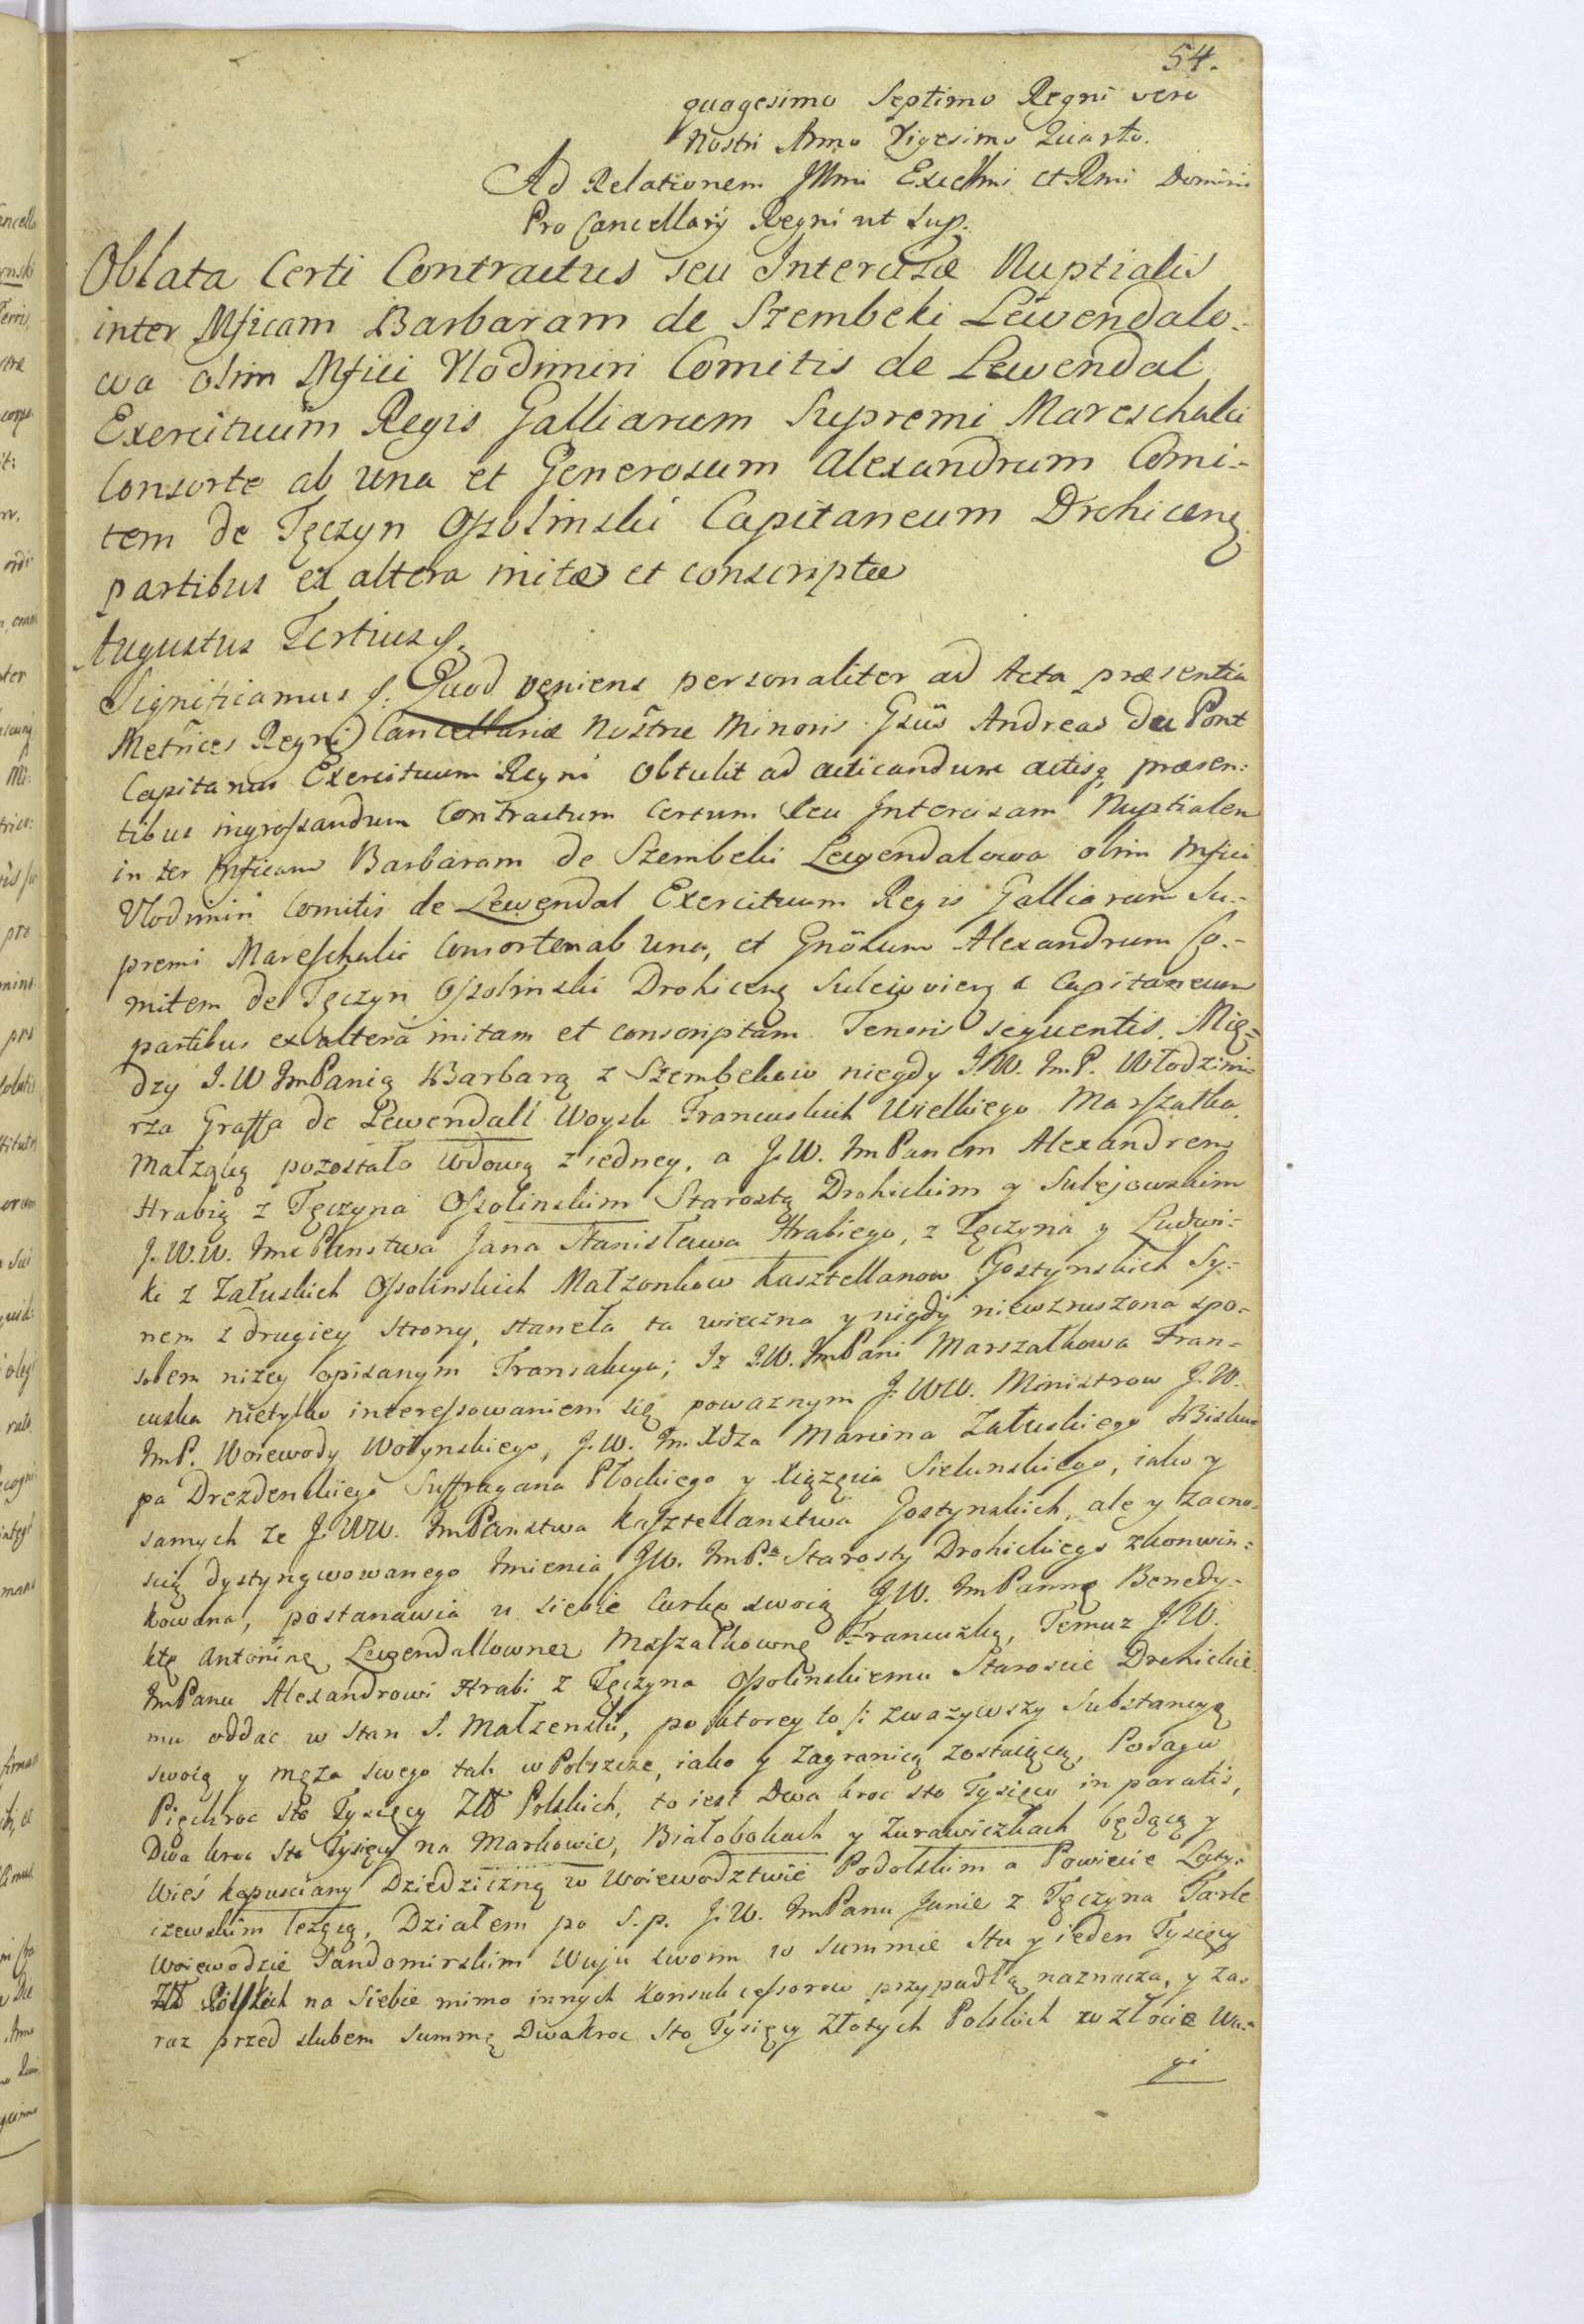 54.
quagesimo Septimo Regni vero
Nostri Anno Vigesimo Quarto.
Ad Relationem Illmi Excellmi et Rmi Domini
Pro Cancellarÿ Regni ut sup.
Oblata Certi Contractus seu Intercisæ Nuptialis
inter Mficam Barbaram de Szembeki Lewendalo-
wa olim Mfici Vlodimiri Comitis de Lewendal
Exercituum Regis Galliarum Supremi Mareschalci
Consorte ab una et Generosum Alexandrum Comi-
tem de Tęczyn Ossolinski Capitaneum Drohicenȩ
partibus ex altera initæ et conscriptæ
Augustus Tertius
Significamus Quod veniens personaliter ad Acta præsentia
Metrices Regni Cancellariæ Nostræ Minoris Gsus Andreas du Pont
Capitanus Exercituum Regni obtulit ad acticandum actisq præsen:
tibus ingrossandum Contractum Certum seu Intercisam Nuptialem
in ter Mficam Barbaram de Szembeki Lewendalowa olim Mfici
Vlodimiri Comitis de Lewendal Exercituum Regis Galliarum Su-
premi Mareschalci Consortem ab una, et Gnosum Alexandrum Co-
mitem de Tęczyn Ossolinski Drohicenȩ Capitaneum
partibus ex altera initam et conscriptam Tenoris sequentis. Mię=
dzy J.W JmPanią Barbarą z Szembekow niegdy J.W. Jm.P. Włodzimi-
rza Graffa de Lewendall Woysk Francuskich Wielkiego Marszałka
Małząką pozostało wdową z iedney, a J.W. JmPanem Alexandrem
Hrabią z Tęczyna Ossolinskim Starostą Drohickim y Sulejowskim
J.W.W. Jmc Panstwa Jana Stanisława Hrabiego, z Tęczyna y Ludwi-
ki z Załuskich Ossolinskich Małzonkow Kasztellanow Gostynskich Sy-
nem z drugiey strony, staneła ta wieczna y nigdy niewzruszona spo-
sobem nizey opisanym Transakcya; Iz J.W. JmPani Marszałkowa Fran-
cuska nietylko interessowaniem się powaznym J.WW. Ministrow J.W.
JmP. Woiewody Wołynskiego, J.W. Jm. Xdza Marcina Załuskiego Bisku
pa Drezdenskiego Suffragana Płockiego y Xiązęcia Sielunskiego, iako y
samych ze J.WW. JmPanstwa Kasztellanstwa Gostynskich, ale y zacno-
scią dystyngwowanego Jmienia JW. JmPa Starosty Drohickiego zkonwin-
kowana, postanawia u siebie Curkę swoią J.W. JmPannę Benedy-
ktę Antoninę Lewendallownę Marszałkownę Francuzką, Temuz J.W.
JmPanu Alexandrowi Hrabi z Tęczyna Ossolinskiemu Staroscie Drohickie
mu oddac w Stan S. Małzenski, po ktorey to /: zwazywszy Substancyą
swoią y męza swego tak w Polszcze, iako y zagranicą zostaiącą, Posagu
Pięckroc sto Tysięcy Złł Polskich, to iest Dwa kroc sto Tysięcy in paratis,
Dwa kroc sto Tysięcy na Markowie, Białobokach y Zurawiczkach będącą y
Wieś kapusciany Dziedziczną w Woiewodztwie Podolskim a Powiecie Laty-
czewskim lezącą, Działem po S.p. J.W. JmPanu Janie z Tęczyna Tarle
Woiewodzie Sandomirskim Wuju swoim w Summie Stu y ieden Tysięcy
Złł Polskich na siebie mimo innych Konsukcessorow przypadłą naznacza, y za-
raz przed slubem Summę Dwakroc sto Tysięcy Złotych Polskich w złocie Wa-
gi